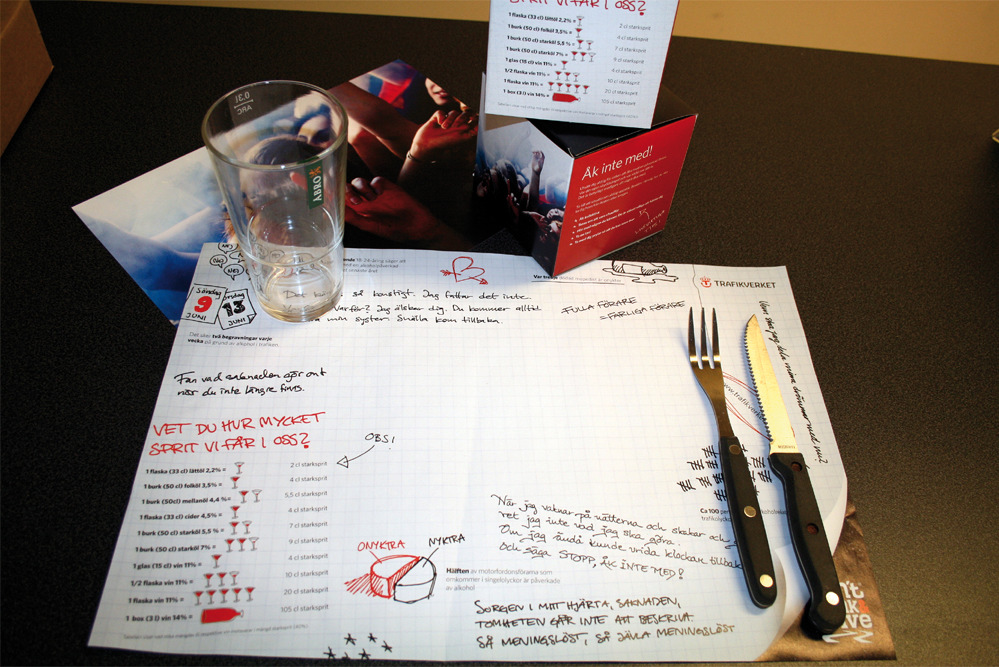 SPRIT VI FÅR I OSS?
1 flaska (33 cl) lättöl 2,2% = 2 cl starksprit
1 burk (50 cl) folköl 3,5% = 4 cl starksprit
1 burk (50 cl) starköl 5,5 % = 7 cl starksprit
1 burk (50 cl) starköl 7% = 9 cl starksprit
1 glas (15 cl) vin 11% = 4 cl starksprit
1/2 flaska vin 11% = 10 cl starksprit
1 flaska vin 11% = 20 cl starksprit
1 box (3 l) vin 14% = 105 cl starksprit
Åk inte med!
0,3l
ARC
ÅBRO
NEJ
Nej
NEJ
Söndag
9
JUNI
Torsdag
13
JUNI
Det sker två begravningar varje
vecka på grund av alkohol i trafiken.
18-24-åring säger att
TRAFIKVERKET
så konstigt. Jag fattar det inte.
Varför? Jag älskar dig. Du kommer alltid
min syster. Snälla kom tillbaka.
FULLA FÖRARE
= FARLIGA FÖRARE
Vem ska jag dela mina drömmar med nu?
www.trafikverk
Fan vad saknaden gör ont
när du inte längre finns.
VET DU HUR MYCKET
SPRIT VI FÅR I OSS?
OBS!
1 flaska (33 cl) lättöl 2,2% = 2 cl starksprit
1 burk (50 cl) folköl 3,5% = 4 cl starksprit
1 burk (50cl) mellanöl 4,4 % = 5,5 cl starksprit
1 flaska (33 cl) cider 4,5% = 4 cl starksprit
1 burk (50 cl) starköl 5,5 % = 7 cl starksprit
1 burk (50 cl) starköl 7% = 9 cl starksprit
1 glas (15 cl) vin 11% = 4 cl starksprit
1/2 flaska vin 11% = 10 cl starksprit
1 flaska vin 11% = 20 cl starksprit
1 box (3 l) vin 14% = 105 cl starksprit
Ca 100 per
trafikolyck
När jag vaknar på nätterna och skakar och
vet jag inte vad jag ska göra.
Om jag ändå kunde vrida klockan tillbak
Och säga STOPP, ÅK INTE MED!
ONYKTRA
NYKTRA
Hälften av motorfordonsförarna som
omkommer i singelolyckor är påverkade
av alkohol
SORGEN I MITT HJÄRTA, SAKNADEN,
TOMHETEN GÅR INTE ATT BESKRIVA.
SÅ MENINGSLÖST, SÅ JÄVLA MENINGSLÖST